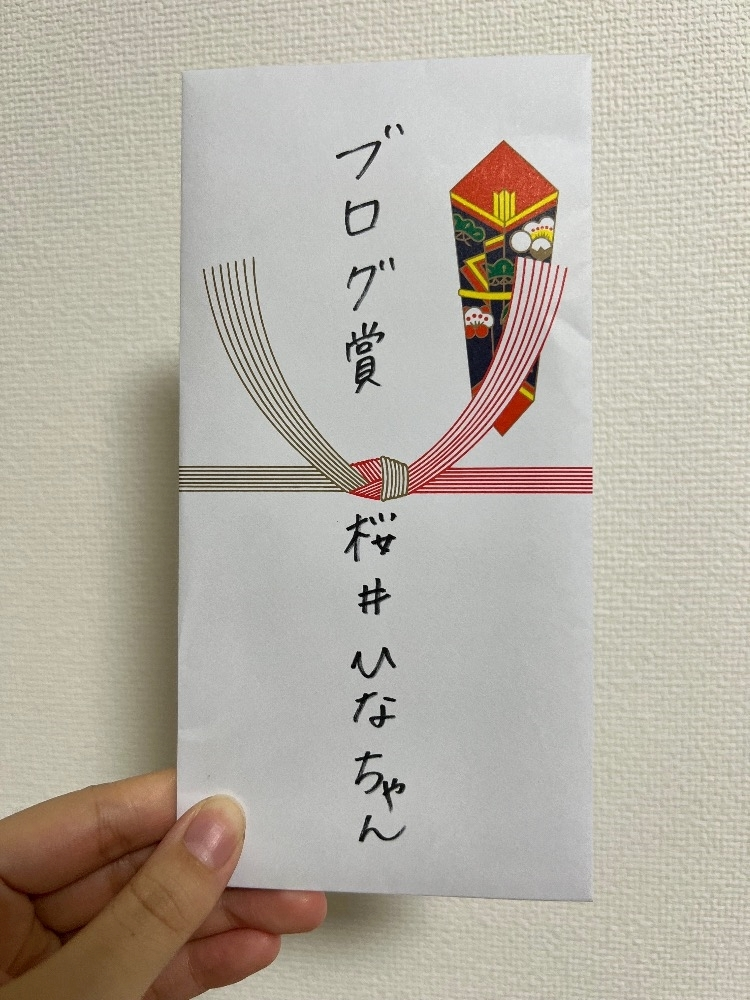 ブログ賞
桜井ひなちゃん